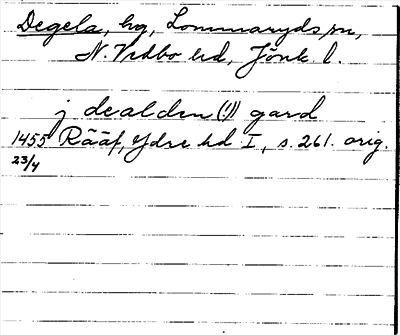 Degela, hg, Lommaryds sn,
N. Vedbo hd, Jönk. l.
j dealden (!) gard
1455 Rääf, Ydre hd I, s. 261. orig.
23/4